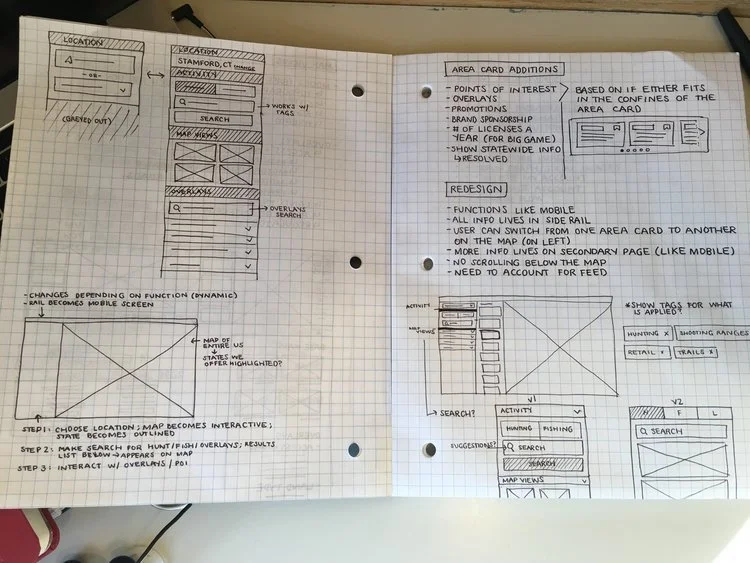 LOCATION
-OR-
(GREYED OUT)
LOCATION
STAMFORD, CT CHANGE
ACTIVITY
SEARCH
→WORKS W/
TAGS
MAP VIEWS
OVERLAYS
→OVERLAYS
SEARCH
- CHANGES DEPENDING ON FUNCTION (DYNAMIC)
- RAIL BECOMES MOBILE SCREEN
MAP OF
ENTIRE US
↓
STATES WE
OFFER HIGHLIGHTED?
STEP 1: CHOOSE LOCATION; MAP BECOMES INTERACTIVE;
STATE BECOMES OUTLINED
STEP 2: MAKE SEARCH FOR HUNT/FISH/OVERLAYS; RESULTS
LIST BELOW → APPEARS ON MAP
STEP 3: INTERACT W/ OVERLAYS / POI
AREA CARD ADDITIONS
- POINTS OF INTEREST
- OVERLAYS
- PROMOTIONS
- BRAND SPONSORSHIP
- # OF LICENSES A
YEAR (FOR BIG GAME)
- SHOW STATEWIDE INFO
↳RESOLVED
BASED ON IF EITHER FITS
IN THE CONFINES OF THE
AREA CARD
REDESIGN
- FUNCTIONS LIKE MOBILE
- ALL INFO LIVES IN SIDE RAIL
- USER CAN SWITCH FROM ONE AREA CARD TO ANOTHER
ON THE MAP (ON LEFT)
- MORE INFO LIVES ON SECONDARY PAGE (LIKE MOBILE)
- NO SCROLLING BELOW THE MAP
- NEED TO ACCOUNT FOR FEED
ACTIVITY
MAP VIEWS
*SHOW TAGS FOR WHAT
IS APPLIED?
HUNTING x
SHOOTING RANGES
RETAIL x
TRAILS x
→ SEARCH?
V1
ACTIVITY
HUNTING FISHING
SUGGESTIONS?
SEARCH
SEARCH
MAP VIEWS
V2
H F L
SEARCH